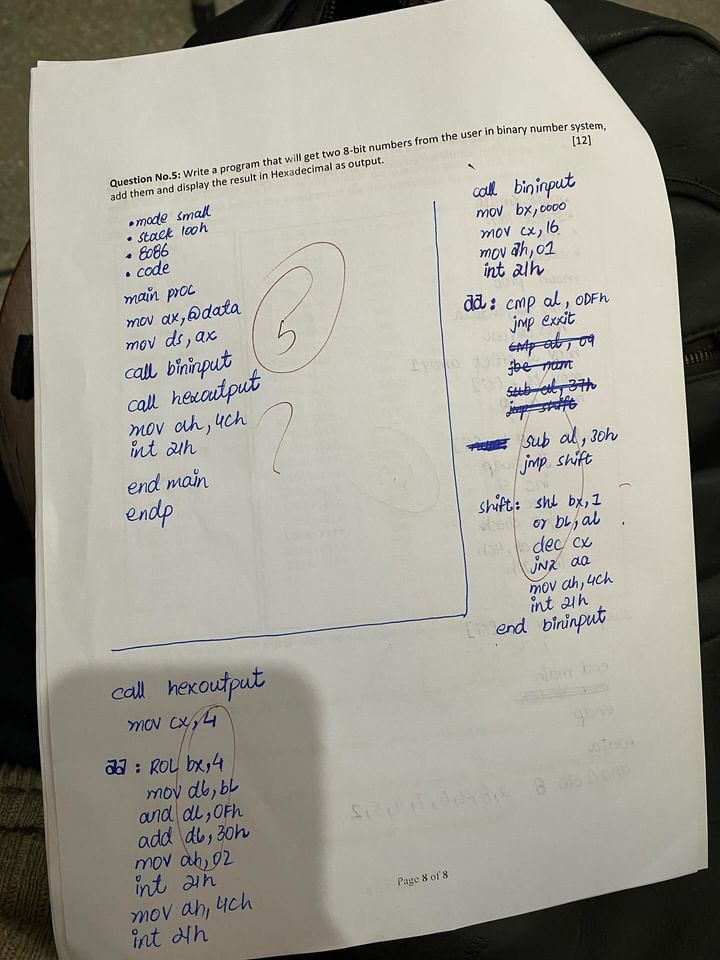 Question No.5: Write a program that will get two 8-bit numbers from the user in binary number system,
add them and display the result in Hexadecimal as output. [12]
.mode small
. stack 100h
. 8086
. code
main proc
mov ax,@data
mov ds, ax
call bininput
call hexoutput
mov ah, 4ch
int 21h
end main
endp
5
?
call bininput
mov bx,0000
mov cx,16
mov ah,01
int 21h
aa: cmp al, 0DFh
jmp exxit
cmp al, 09
jbe num
sub al, 37h
jmp shift
sub al, 30h
jmp shift
shift: shl bx,1
or bL,al
dec cx
jNZ aa
mov ah,4ch
int 21h
end bininput
call hexoutput
mov cx,4
aa: ROL bx,4
mov dL,bL
and dL,0Fh
add dL,30h
mov ah,02
int 21h
mov ah, 4ch
int 21h
Page 8 of 8